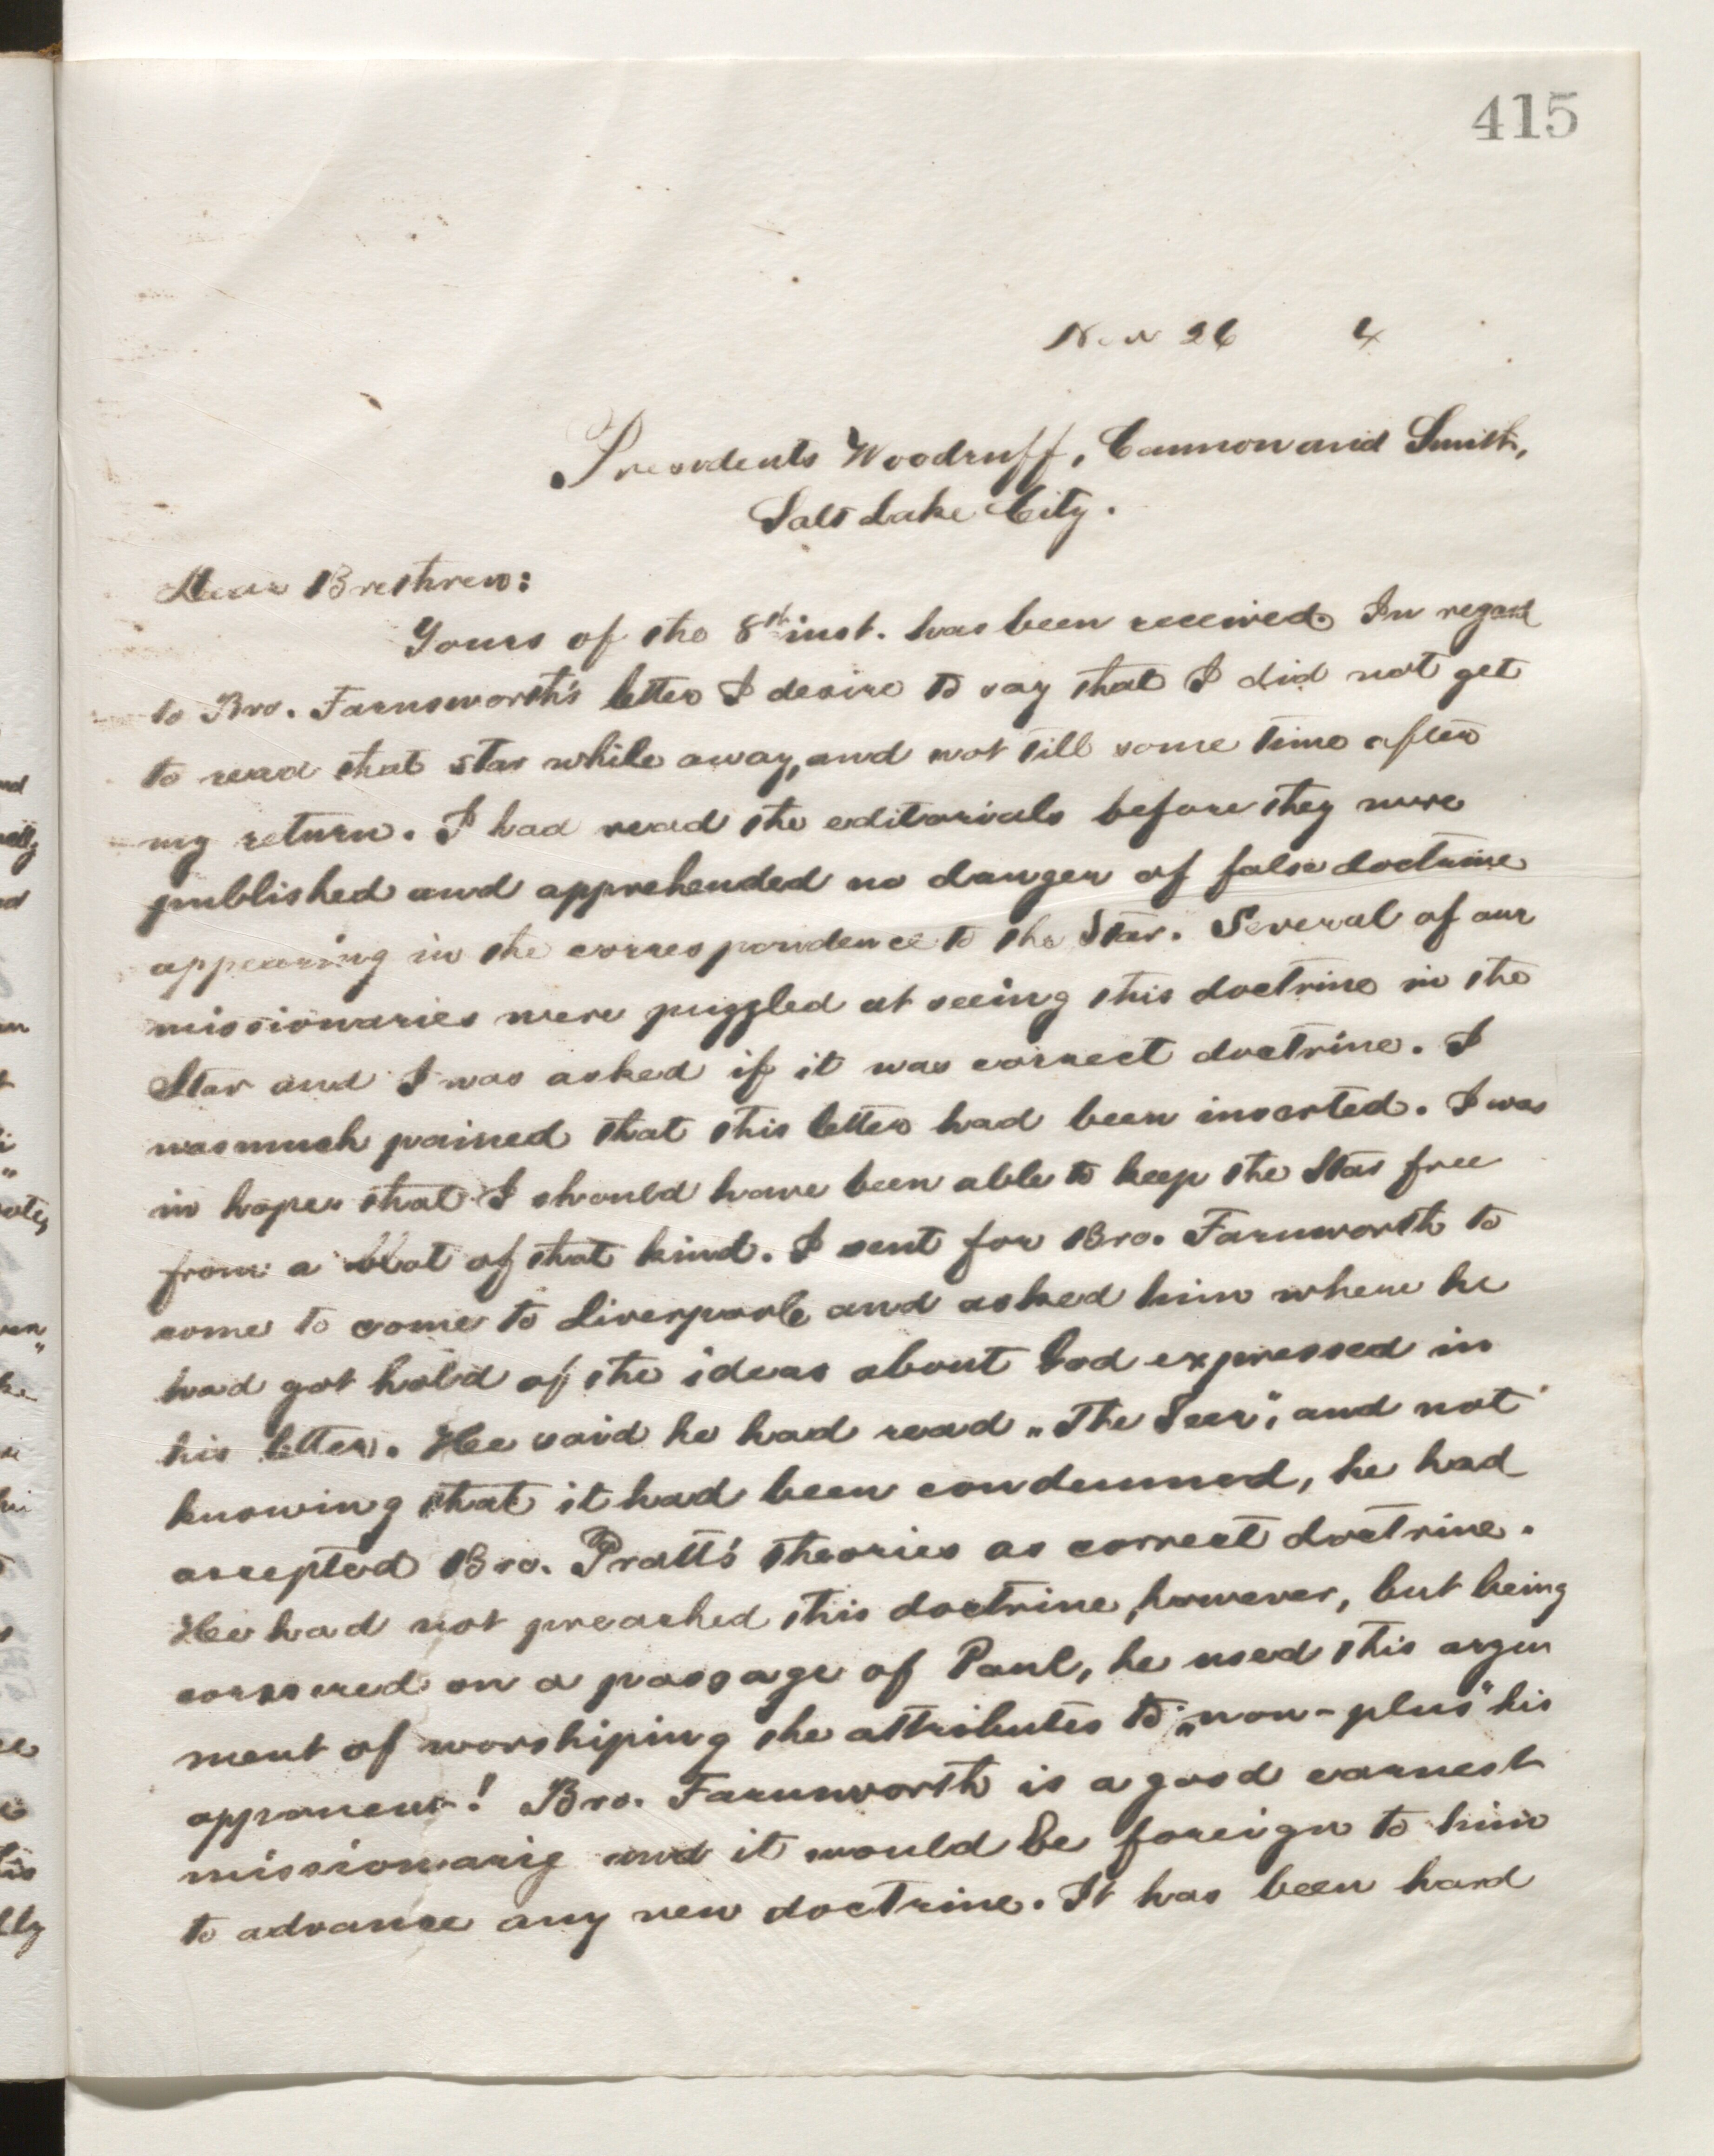 415
Nov 26 4
Presidents Woodruff, Cannon and Smith,
Salt Lake City.
Dear Brethren:
Yours of the 8th inst. has been received. In regard
to Bro. Farnsworth's letter I desire to say that I did not get
to read that star while away, and not till some time after
my return. I had read the editorials before they were
published and apprehended no danger of false doctrine
appearing in the correspondence to the Star. Several of our
missionaries were puzzled at seeing this doctrine in the
Star and I was asked if it was correct doctrine. I
was much pained that this letter had been inserted. I was
in hopes that I should have been able to keep the Star free
from a blot of that kind. I sent for Bro. Farnworth to
come to come to Liverpool and asked him where he
had got hold of the ideas about God expressed in
his letter. He said he had read „The Seer", and not
knowing that it had been condemned, he had
accepted Bro. Pratt's theories as correct doctrine.
He had not preached this doctrine, however, but being
cornered on a passage of Paul, he used this argu
ment of worshiping the attributes to „non-plus" his
opponent! Bro. Farnworth is a good earnest
missionarig and it would be foreign to him
to advance any new doctrine. It has been hard